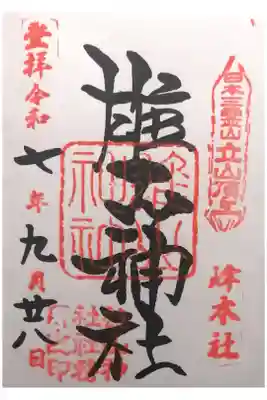 日本三霊山立山頂上
峰本社
雄山神社
登拝令和七年九月廿八日